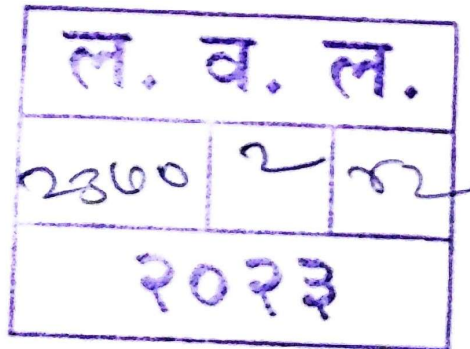 ल. व. ल.
२३७० २ ४२
२०२३